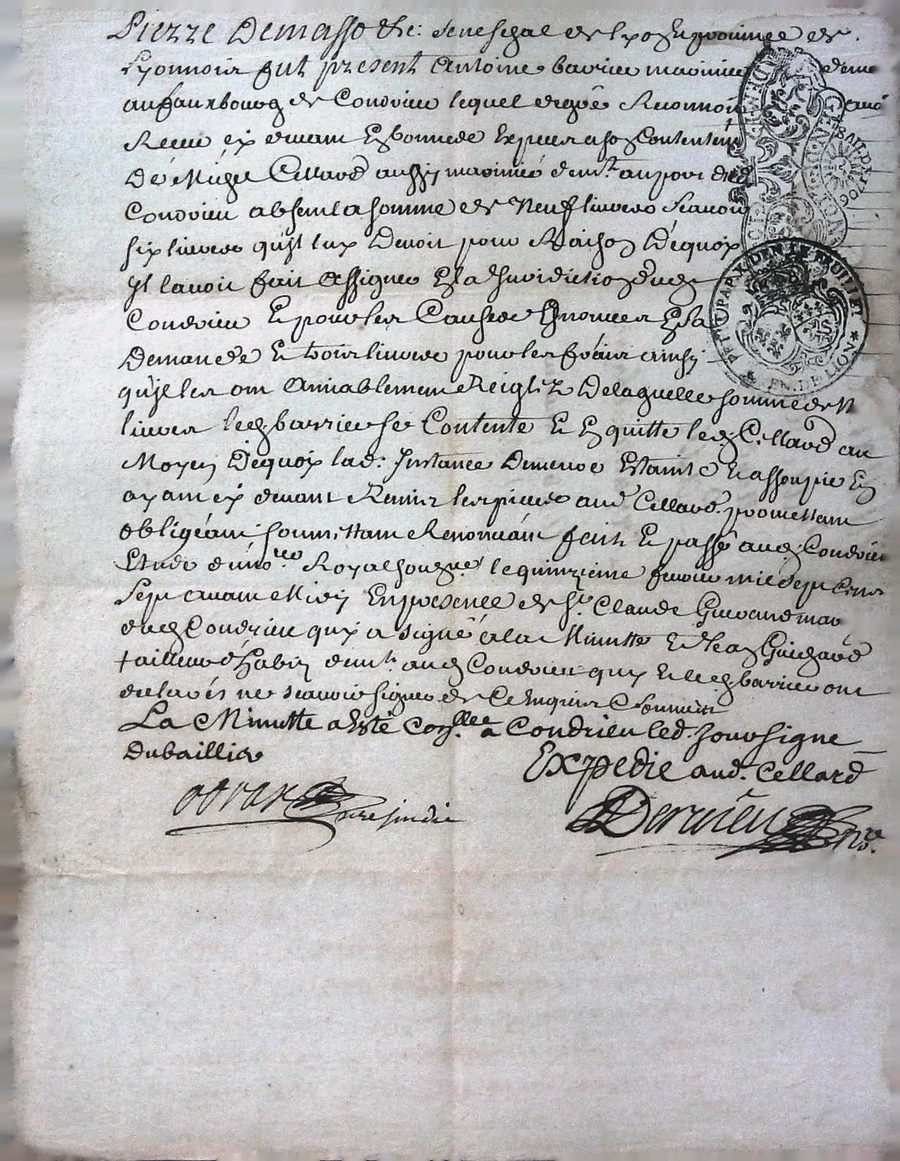 Pierre Demasso che: Senechal de Lyon Et province de
Lyonnois fut present Antoine barrier marinier dem
au fauxbourg de Condrieu lequel de gré Reconnoit avoir
Receu cy devant Et bonnede Expeuer a son Contentem
De Michel Cellard aussy marinier dem.t au port dud
Condrieu absent la somme de Neuf livres scavoir
six livres qu'il luy Devoit pour Raison Dequoy
Il l'avoit fait assigner En la Juridiction dud
Condrieu Et pour les Causes Enoncées En la
Demande Et trois livres pour les frais ainsy
qu'ils les ont Amiablement Reiglez De laquelle somme de
livres led barrier se Contente Et En quitte led Cellard au
Moyen Dequoy lad. Instance Demeure Estainte Et assoupie Et
ayant cy devant Remis les pieces aud Cellard promettant
obligeant soumettant Renonceant fait Et passé aud Condrieu
Etude du no.re Royal soug.né le quinzieme feuvrier mil sept Cens
sept avant Midy En presence de s.r Claude mar.d
dud Condrieu quy a signé a la Minutte Et Jean Guichard
tailleur d'habis dem.t aud Condrieu quy Et led barrier ont
declarés ne scavoir signer de Ce Enquis Et Sommés
La Minutte a Esté Con.llée a Condrieu led. Jour signe
Dubaillier
Expedié aud. Cellard
Dervieu no.re
GEN. D.
PET. PAP. X. DEN. LE FEUILLET
GEN. DE LION